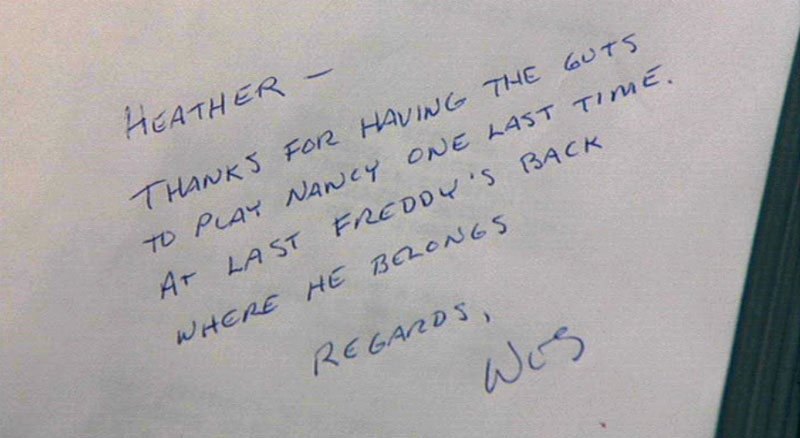 HEATHER —
THANKS FOR HAVING THE GUTS
TO PLAY NANCY ONE LAST TIME.
AT LAST FREDDY'S BACK
WHERE HE BELONGS
REGARDS,
Wes